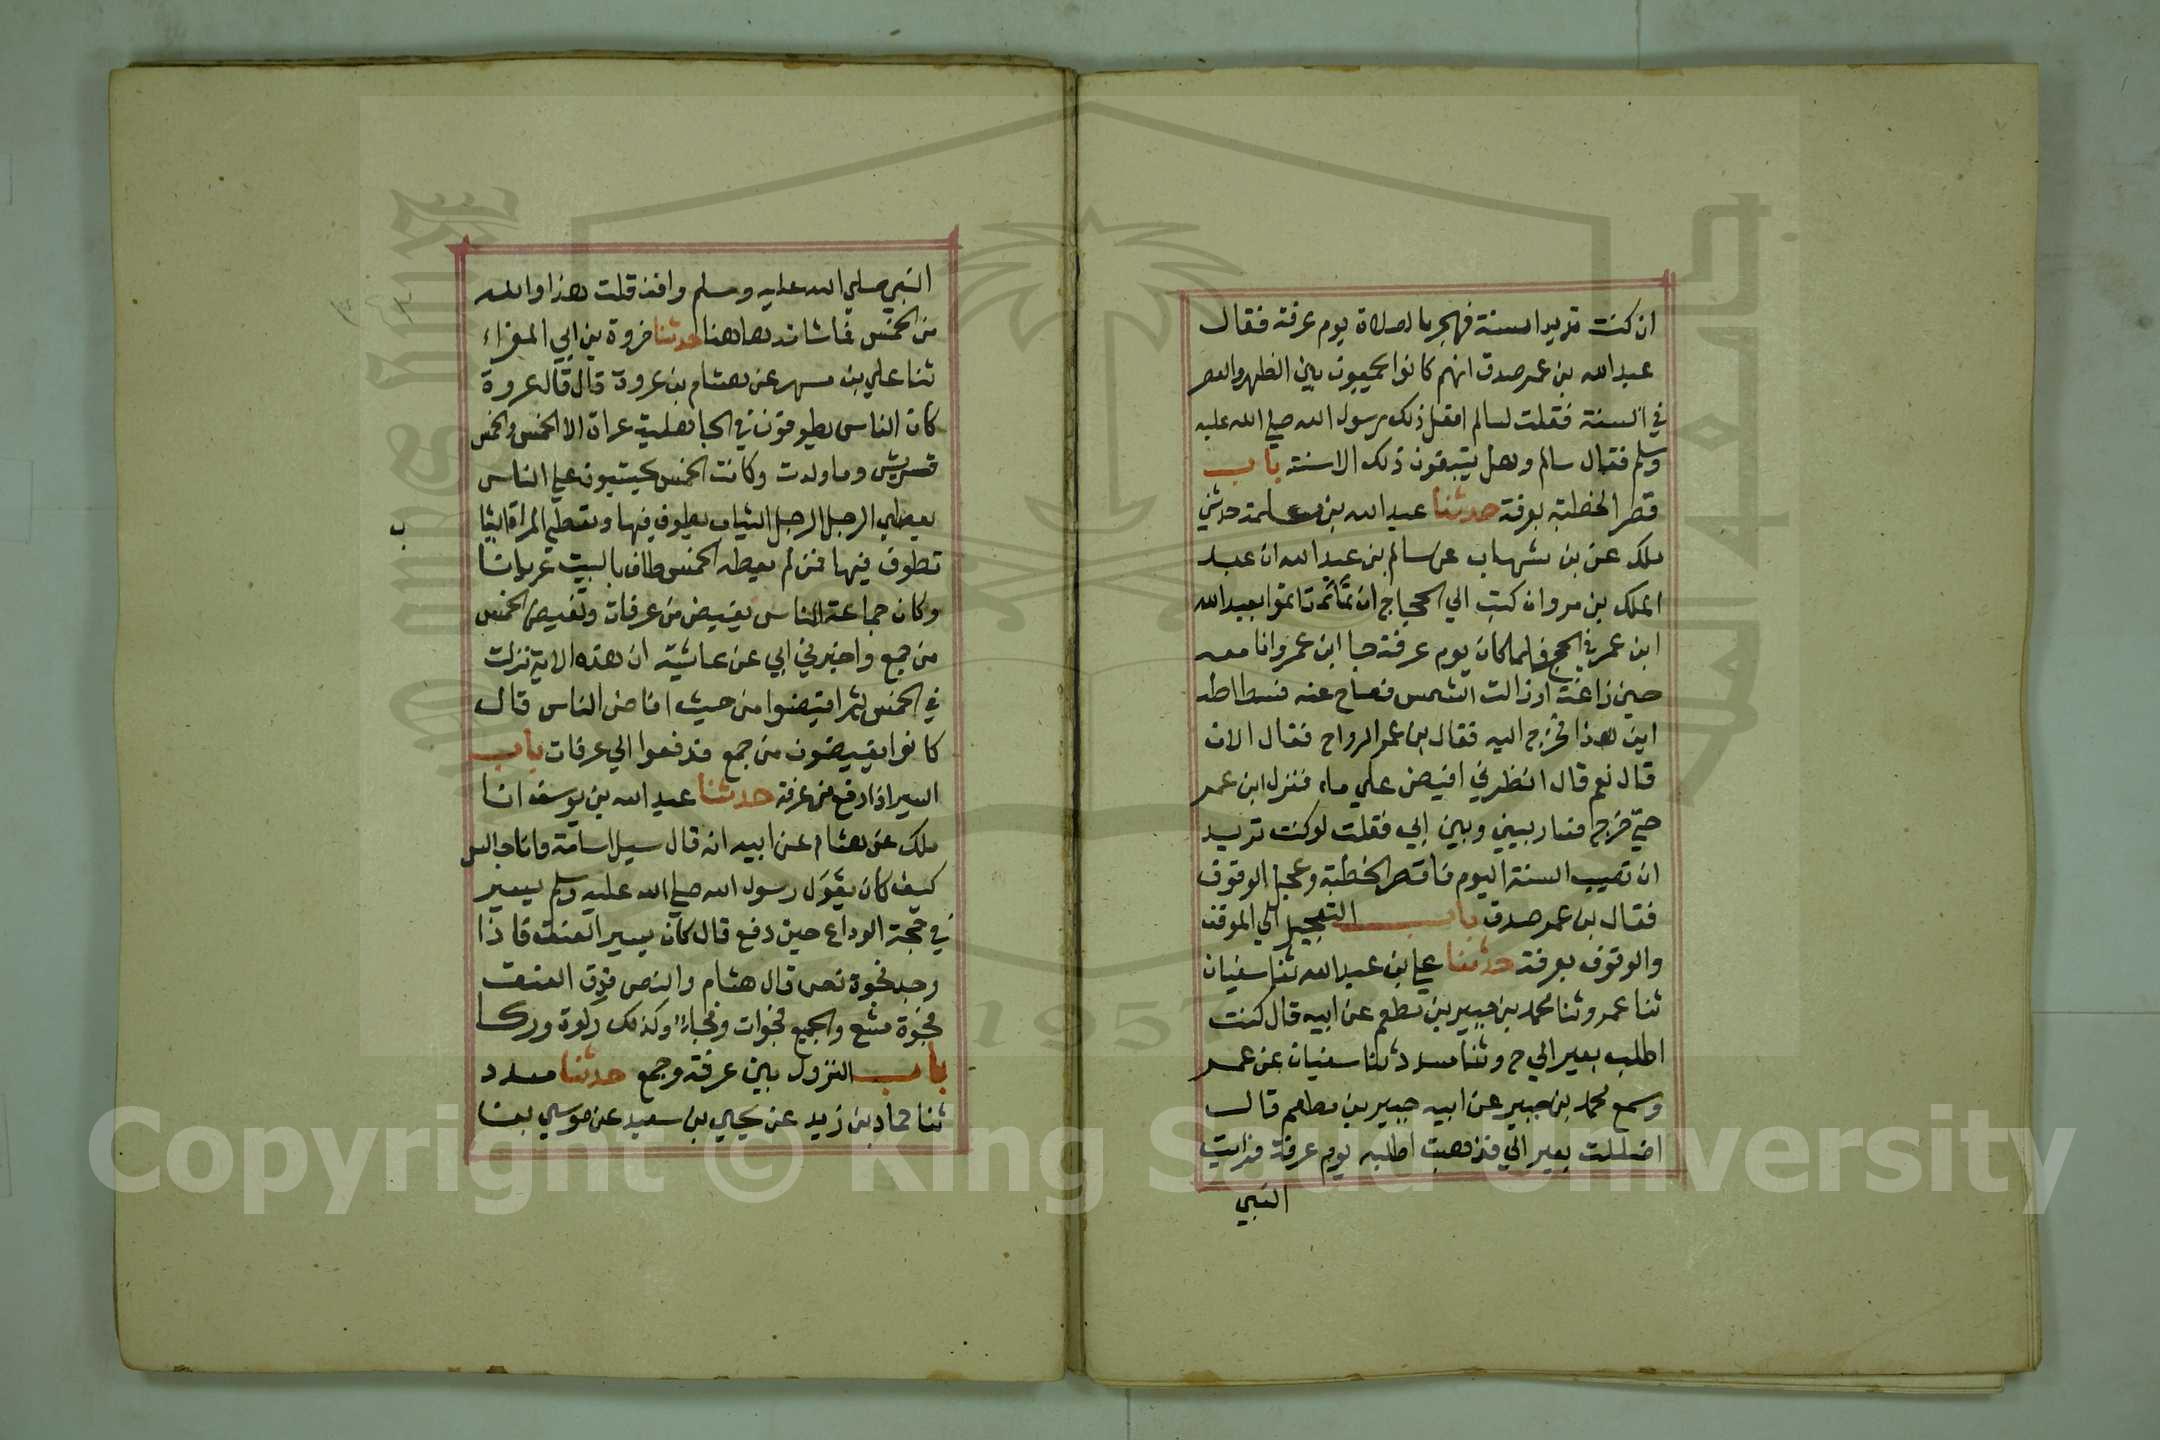 ان كنت تريد السنة فهجر بالصلاة يوم عرفة فقال
عبد الله بن عمر صدق انهم كانوا يجمعون بين الظهر والعصر
في السنة فقلت لسالم افعل ذلك رسول الله صلي الله عليه
وسلم فقال سالم وهل يتبعون ذلك الا سنته باب
قصر الخطبة بعرفة حدثنا عبد الله بن مسلمة حدثني
ملك عن بن شهاب عن سالم بن عبد الله ان عبد
الملك بن مروان كتب الي الحجاج ان يأتم بعبد الله
ابن عمر في الحج فلما كان يوم عرفة جا ابن عمر وانا معه
حين زاغت او زالت الشمس فصاح عند فسطاطه
اين هذا فخرج اليه فقال بن عمر الرواح فقال الان
قال نعم قال انظرني افيض علي ماء فنزل ابن عمر
حتي خرج فسار بيني وبين ابي فقلت لو كنت تريد
ان تصيب السنة اليوم فاقصر الخطبة وعجل الوقوف
فقال بن عمر صدق باب التعجيل الي الموقف
والوقوف بعرفة حدثنا علي بن عبد الله ثنا سفيان
ثنا عمرو ثنا محمد بن جبير بن مطعم عن ابيه قال كنت
اطلب بعير الي ح وثنا مسدد ثنا سفيان عن عمر
وسمع محمد بن جبير عن ابيه جبير بن مطعم قال
اضللت بعير الي فذهبت اطلبه يوم عرفة فرايت
النبي
النبي صلي الله عليه وسلم واقف قلت هذا والله
من الحمس فما شانه هاهنا حدثنا فروة بن ابي المغراء
ثنا علي بن مسهر عن هشام بن عروة قال قال عروة
كان الناس يطوفون في الجاهلية عراة الا الحمس والحمس
قريش وما ولدت وكانت الحمس يحتسبون علي الناس
يعطي الرجل الرجل الثياب يطوف فيها وتعطي المراة الثيا
تطوف فيها فمن لم يعطه الحمس طاف بالبيت عريانا
وكان جماعة الناس يفيض من عرفات وتفيض الحمس
من جمع واخبرني ابي عن عائشة ان هذه الاية نزلت
في الحمس ثم افيضوا من حيث افاض الناس قال
كانوا يفيضون من جمع فدفعوا الي عرفات باب
السير اذا دفع من عرفة حدثنا عبد الله بن يوسف انا
ملك عن هشام عن ابيه انه قال سيل اسامة وانا جالس
كيف كان يقول رسول الله صلي الله عليه وسلم يسير
في حجة الوداع حين دفع قال كان يسير العنق فاذا
وجد فجوة نص قال هشام والنص فوق العنق
فجوة متسع والجميع فجوات وفجاء وكذلك ركوة وركا
باب النزول بين عرفة وجمع حدثنا مسدد
ثنا حماد بن زيد عن يحيي بن سعيد عن موسي بن
ب
1957
Copyright © King Saud University